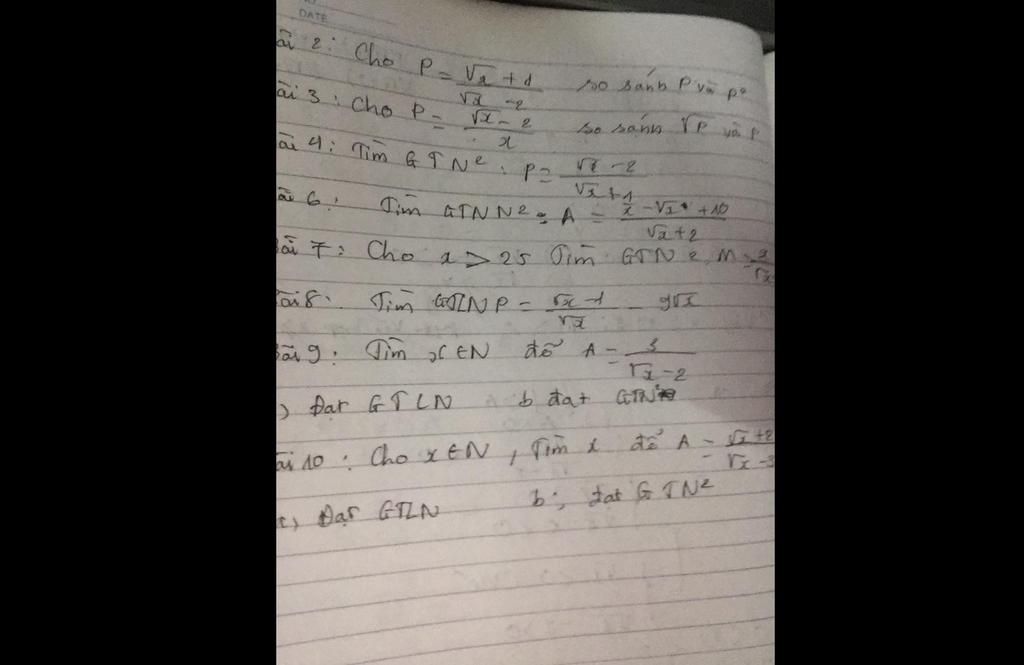 DATE
ài 2: Cho P = (√x + 1)/(√x - 2) so sánh P và P²
ài 3: Cho P = (√x - 2)/x so sánh √P và P
ài 4: Tìm GTN²: P = (√x - 2)/(√x + 1)
ài 6: Tìm GTNN² = A = (x - √x + 10)/(√x + 2)
ài 7: Cho x > 25 Tìm GTN² M =
ài 8: Tìm GTLN P = (√x - 1)/√x - 9√x
ài 9: Tìm x ∈ N để A = 3/(√x - 2)
) Đạt GTLN b đạt GTN²
ài 10: Cho x ∈ N, Tìm x để A = (√x + 2)/(√x - 3
) Đạt GTLN b; đạt GTN²